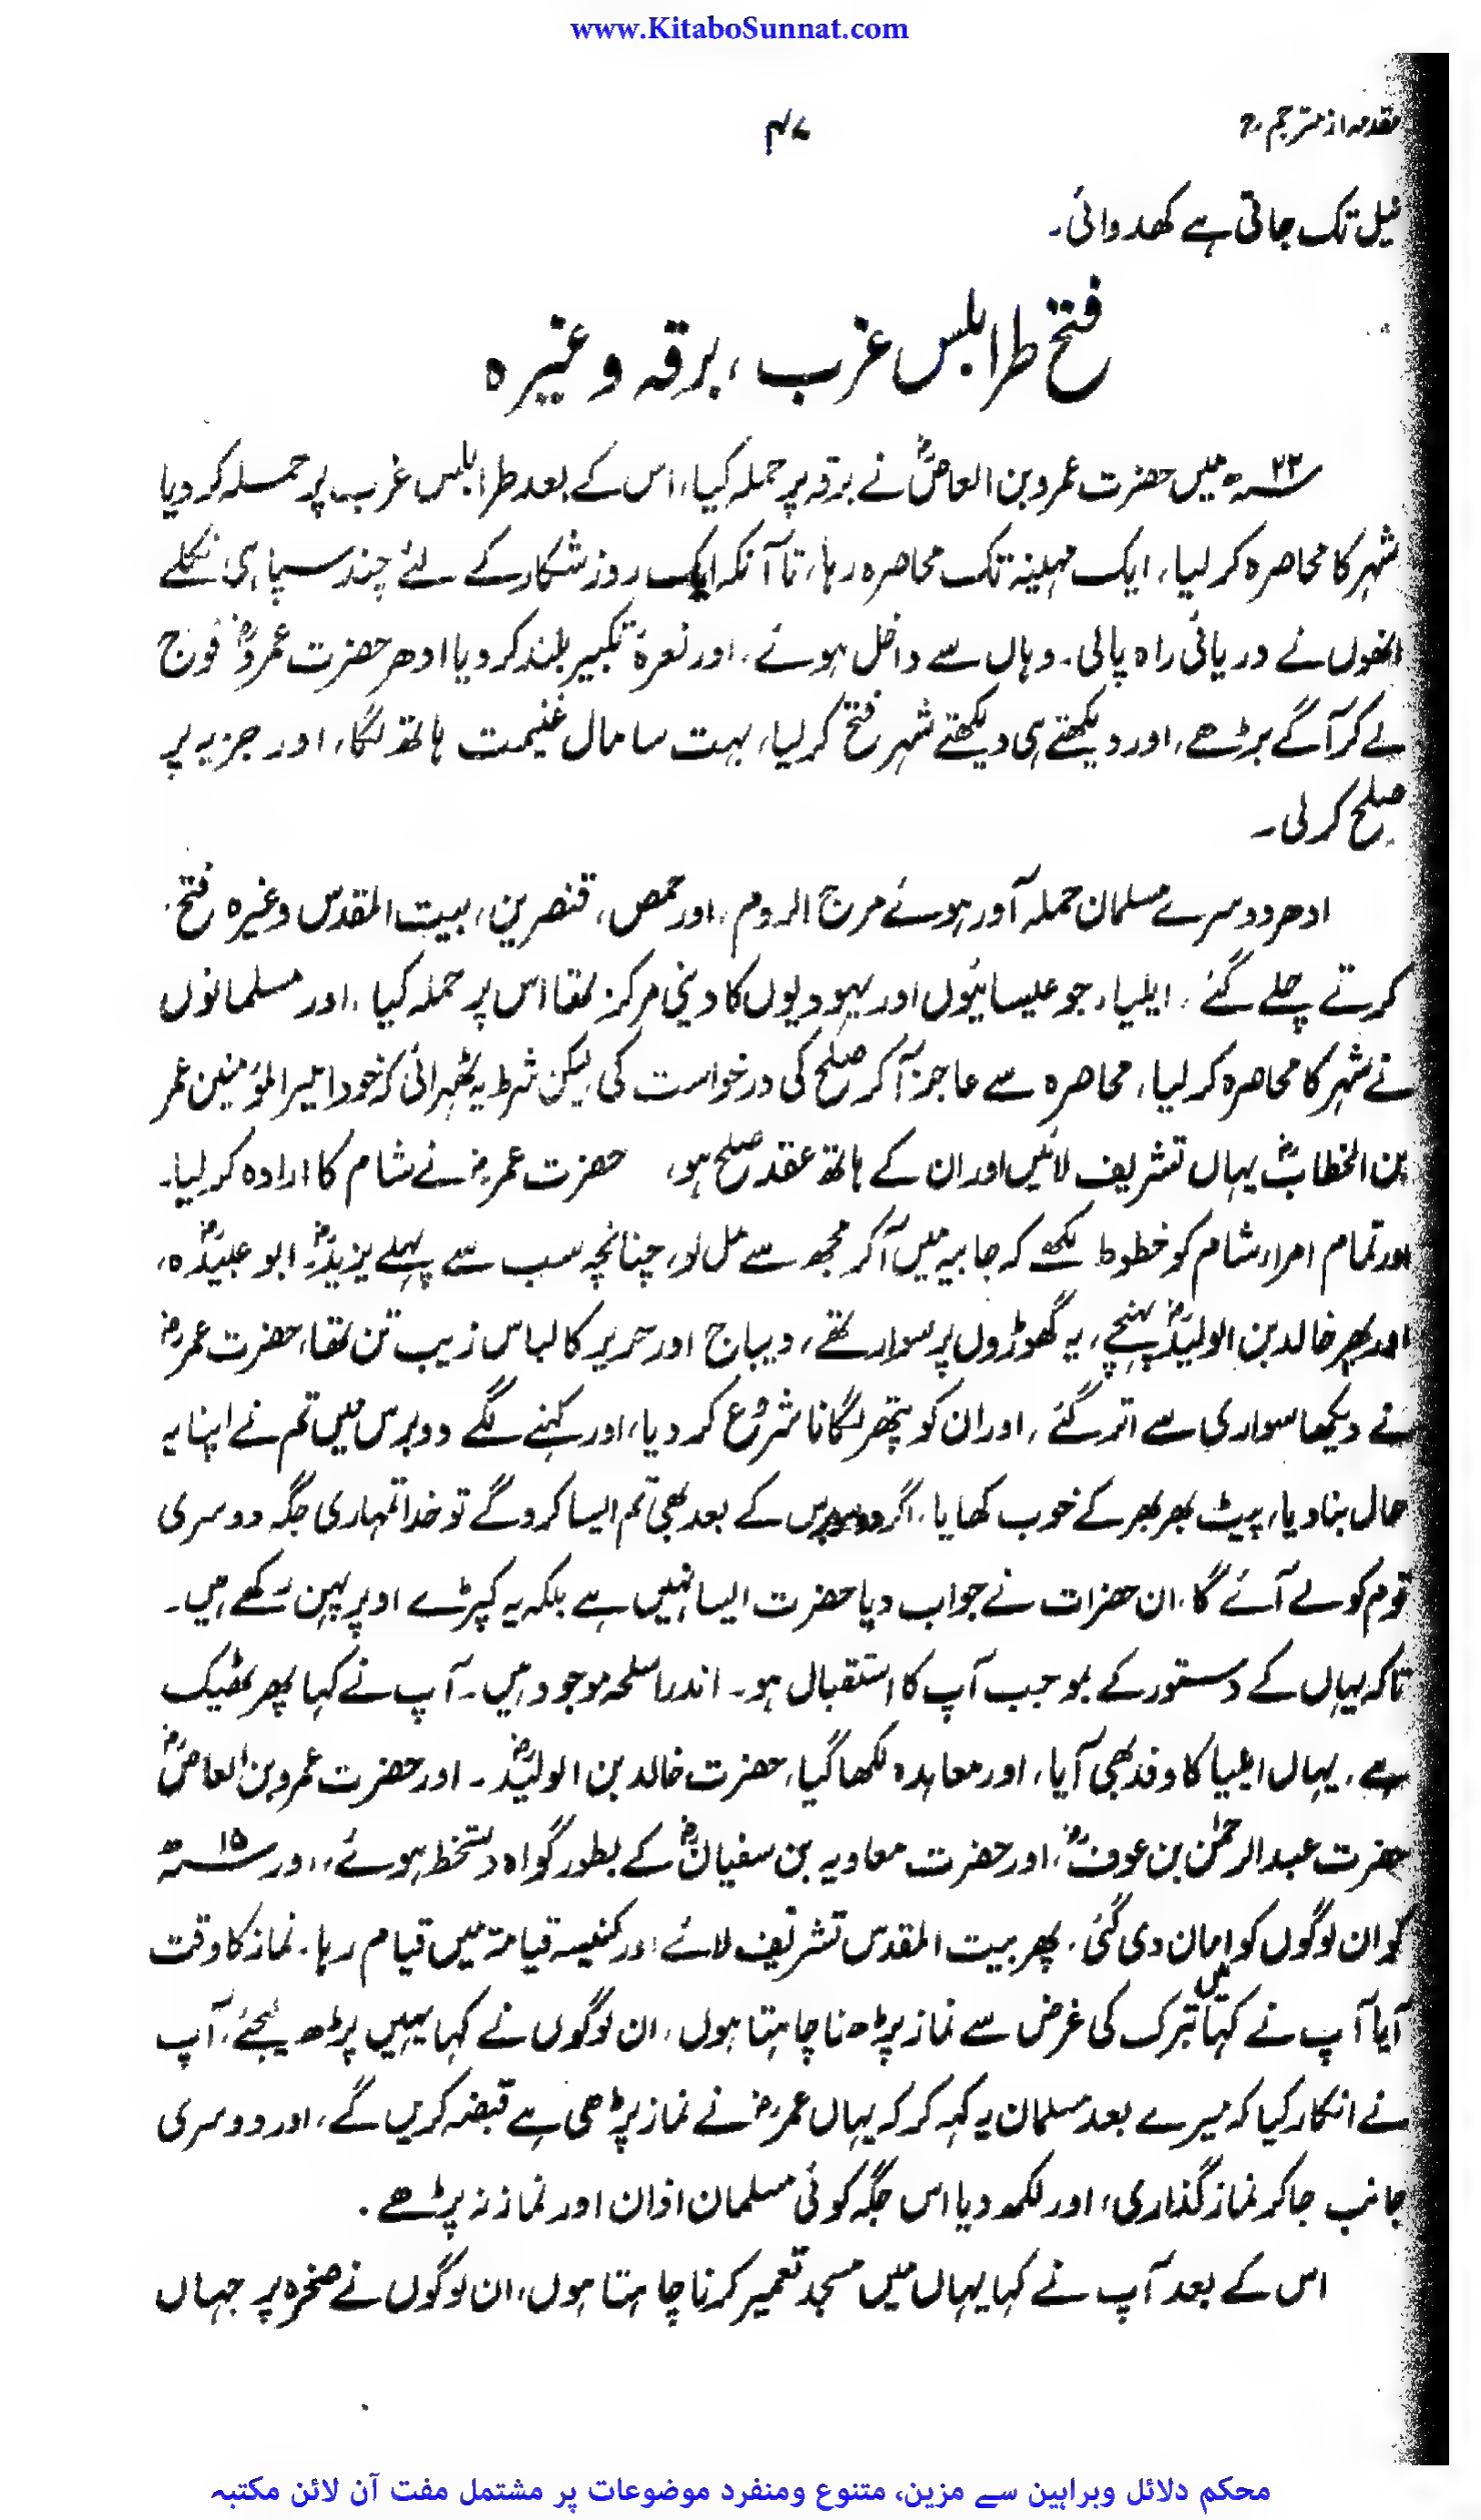 www.KitaboSunnat.com
مقدمہ از مترجم
۴۷
نیل تک جاتی ہے کھدوائی۔
فتح طرابلس غرب، برقہ وغیرہ
۲۲ھ میں حضرت عمرو بن العاصؓ نے برقہ پر حملہ کیا، اس کے بعد طرابلس غرب پر حملہ کر دیا
شہر کا محاصرہ کر لیا، ایک مہینہ تک محاصرہ رہا، تا آنکہ ایک روز شکار کے لئے چند سپاہی نکلے
انھوں نے دریائی راہ پالی۔ وہاں سے داخل ہوئے، اور نعرۂ تکبیر بلند کر دیا ادھر حضرت عمروؓ فوج
لے کر آگے بڑھے، اور دیکھتے ہی دیکھتے شہر فتح کر لیا، بہت سا مال غنیمت ہاتھ لگا، اور جزیہ پر
صلح کر لی۔
ادھر دوسرے مسلمان حملہ آور ہوئے مرج الروم، اور حمص، قنصرین، بیت المقدس وغیرہ فتح
کرتے چلے گئے، ایلیا، جو عیسائیوں اور یہودیوں کا دینی مرکز تھا اس پر حملہ کیا، اور مسلمانوں
نے شہر کا محاصرہ کر لیا، محاصرہ سے عاجز آ کر صلح کی درخواست کی لیکن شرط یہ ٹھہرائی کہ خود امیر المؤمنین عمر
بن الخطابؓ یہاں تشریف لائیں اور ان کے ہاتھ عقد صلح ہو، حضرت عمرؓ نے شام کا ارادہ کر لیا۔
اور تمام امراء شام کو خطوط لکھے کہ جابیہ میں آ کر مجھ سے مل لو، چنانچہ سب سے پہلے یزیدؓ، ابو عبیدؓہ،
اور پھر خالد بن الولیدؓ پہنچے، یہ گھوڑوں پر سوار تھے، دیباج اور حریر کا لباس زیب تن تھا، حضرت عمرؓ
نے دیکھا سواری سے اتر گئے، اور ان کو پتھر لگانا شروع کر دیا، اور کہنے لگے دو برس میں تم نے اپنا یہ
حال بنا دیا، پیٹ بھر بھر کے خوب کھایا، اگر برس کے بعد بھی تم ایسا کرو گے تو خدا تمہاری جگہ دوسری
قوم کو لے آئے گا، ان حضرات نے جواب دیا حضرت ایسا نہیں ہے بلکہ یہ کپڑے اوپر پہن رکھے ہیں۔
تاکہ یہاں کے دستور کے بموجب آپ کا استقبال ہو۔ اندر اسلحہ موجود ہیں۔ آپ نے کہا پھر ٹھیک
ہے، یہاں ایلیا کا وفد بھی آیا، اور معاہدہ لکھا گیا، حضرت خالد بن الولیدؓ۔ اور حضرت عمرو بن العاصؓ
حضرت عبد الرحمٰن بن عوفؓ، اور حضرت معاویہ بن سفیانؓ کے بطور گواہ دستخط ہوئے، اور ۱۵ھ
کو ان لوگوں کو امان دی گئی، پھر بیت المقدس تشریف لائے اور کنیسہ قیامۃ میں قیام رہا۔ نماز کا وقت
آیا آپ نے کہا میں تبرک کی غرض سے نماز پڑھنا چاہتا ہوں، ان لوگوں نے کہا یہیں پڑھ لیجئے، آپ
نے انکار کیا کہ میرے بعد مسلمان یہ کہہ کر کہ یہاں عمرؓ نے نماز پڑھی ہے قبضہ کریں گے، اور دوسری
جانب جا کر نماز گذاری، اور لکھ دیا اس جگہ کوئی مسلمان اذان اور نماز نہ پڑھے۔
اس کے بعد آپ نے کہا یہاں میں مسجد تعمیر کرنا چاہتا ہوں، ان لوگوں نے صخرہ پر جہاں
محکم دلائل وبراہین سے مزین، متنوع ومنفرد موضوعات پر مشتمل مفت آن لائن مکتبہ